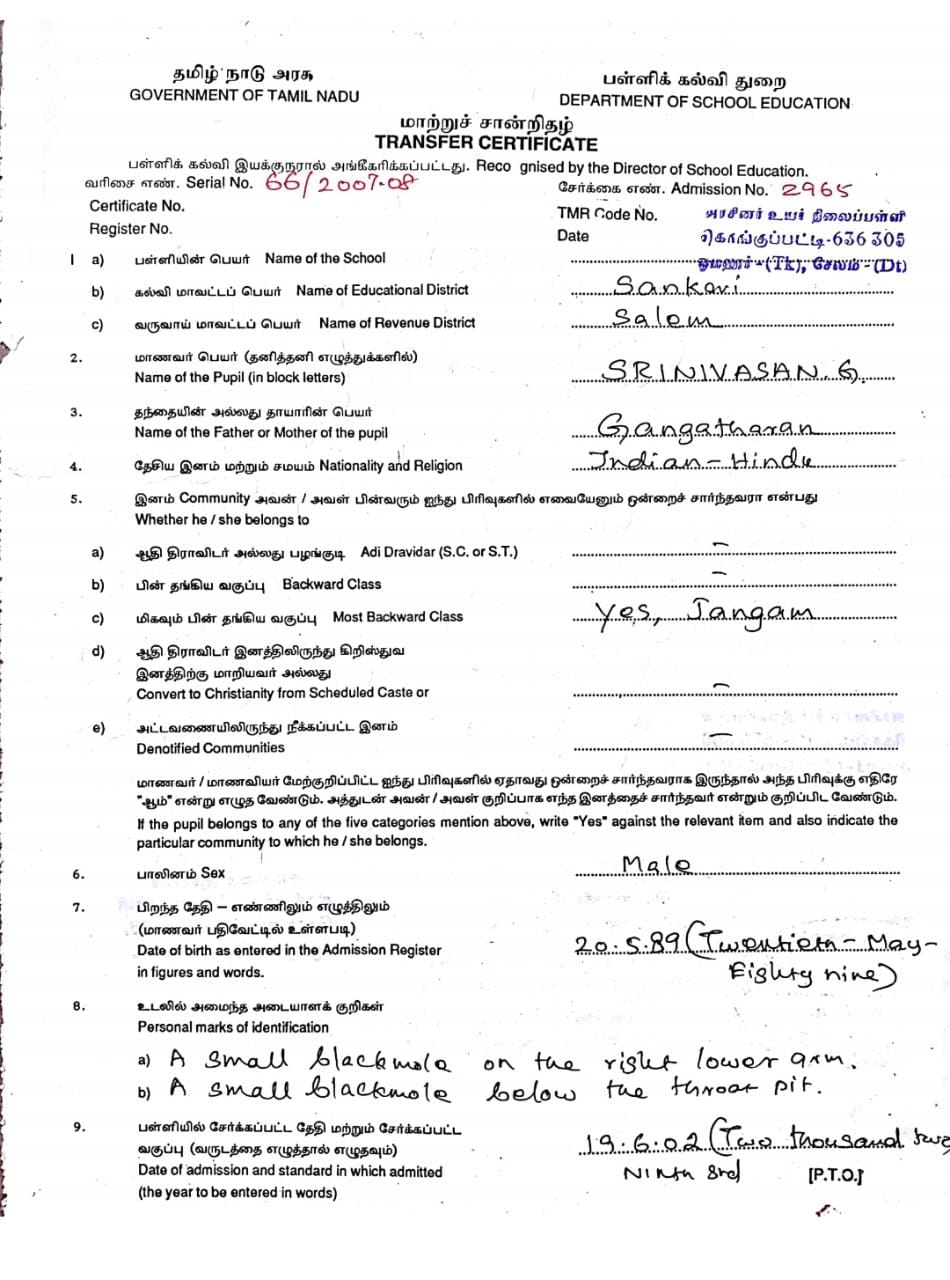 தமிழ் நாடு அரசு
GOVERNMENT OF TAMIL NADU
பள்ளிக் கல்வி துறை
DEPARTMENT OF SCHOOL EDUCATION
மாற்றுச் சான்றிதழ்
TRANSFER CERTIFICATE
பள்ளிக் கல்வி இயக்குநரால் அங்கீகரிக்கப்பட்டது. Reco gnised by the Director of School Education.
வரிசை எண். Serial No. 66/2007-08
சேர்க்கை எண். Admission No. 2965
Certificate No.
TMR Code No. அரசினர் உயர் நிலைப்பள்ளி
Register No.
Date கொங்குப்பட்டி-636 305
I a) பள்ளியின் பெயர் Name of the School ஓமலூர்-(Tk), சேலம்-(Dt)
b) கல்வி மாவட்டப் பெயர் Name of Educational District Sankari
c) வருவாய் மாவட்டப் பெயர் Name of Revenue District Salem
2. மாணவர் பெயர் (தனித்தனி எழுத்துக்களில்)
Name of the Pupil (in block letters) SRINIVASAN. G
3. தந்தையின் அல்லது தாயாரின் பெயர்
Name of the Father or Mother of the pupil Gangatharan
4. தேசிய இனம் மற்றும் சமயம் Nationality and Religion Indian - Hindu
5. இனம் Community அவன் / அவள் பின்வரும் ஐந்து பிரிவுகளில் எவையேனும் ஒன்றைச் சார்ந்தவரா என்பது
Whether he / she belongs to
a) ஆதி திராவிடர் அல்லது பழங்குடி Adi Dravidar (S.C. or S.T.) -
b) பின் தங்கிய வகுப்பு Backward Class -
c) மிகவும் பின் தங்கிய வகுப்பு Most Backward Class Yes, Jangam
d) ஆதி திராவிடர் இனத்திலிருந்து கிறிஸ்துவ
இனத்திற்கு மாறியவர் அல்லது
Convert to Christianity from Scheduled Caste or -
e) அட்டவணையிலிருந்து நீக்கப்பட்ட இனம்
Denotified Communities -
மாணவர் / மாணவியர் மேற்குறிப்பிட்ட ஐந்து பிரிவுகளில் ஏதாவது ஒன்றைச் சார்ந்தவராக இருந்தால் அந்த பிரிவுக்கு எதிரே
"ஆம்" என்று எழுத வேண்டும். அத்துடன் அவன் / அவள் குறிப்பாக எந்த இனத்தைச் சார்ந்தவர் என்றும் குறிப்பிட வேண்டும்.
If the pupil belongs to any of the five categories mention above, write "Yes" against the relevant item and also indicate the
particular community to which he / she belongs.
6. பாலினம் Sex Male
7. பிறந்த தேதி – எண்ணிலும் எழுத்திலும்
(மாணவர் பதிவேட்டில் உள்ளபடி)
Date of birth as entered in the Admission Register 20.5.89 (Twentieth - May-
in figures and words. Eighty nine)
8. உடலில் அமைந்த அடையாளக் குறிகள்
Personal marks of identification
a) A small blackmole on the right lower arm.
b) A small blackmole below the throat pit.
9. பள்ளியில் சேர்க்கப்பட்ட தேதி மற்றும் சேர்க்கப்பட்ட
வகுப்பு (வருடத்தை எழுத்தால் எழுதவும்) 19.6.02 (Two thousand two
Date of admission and standard in which admitted Ninth Srd [P.T.O.]
(the year to be entered in words)